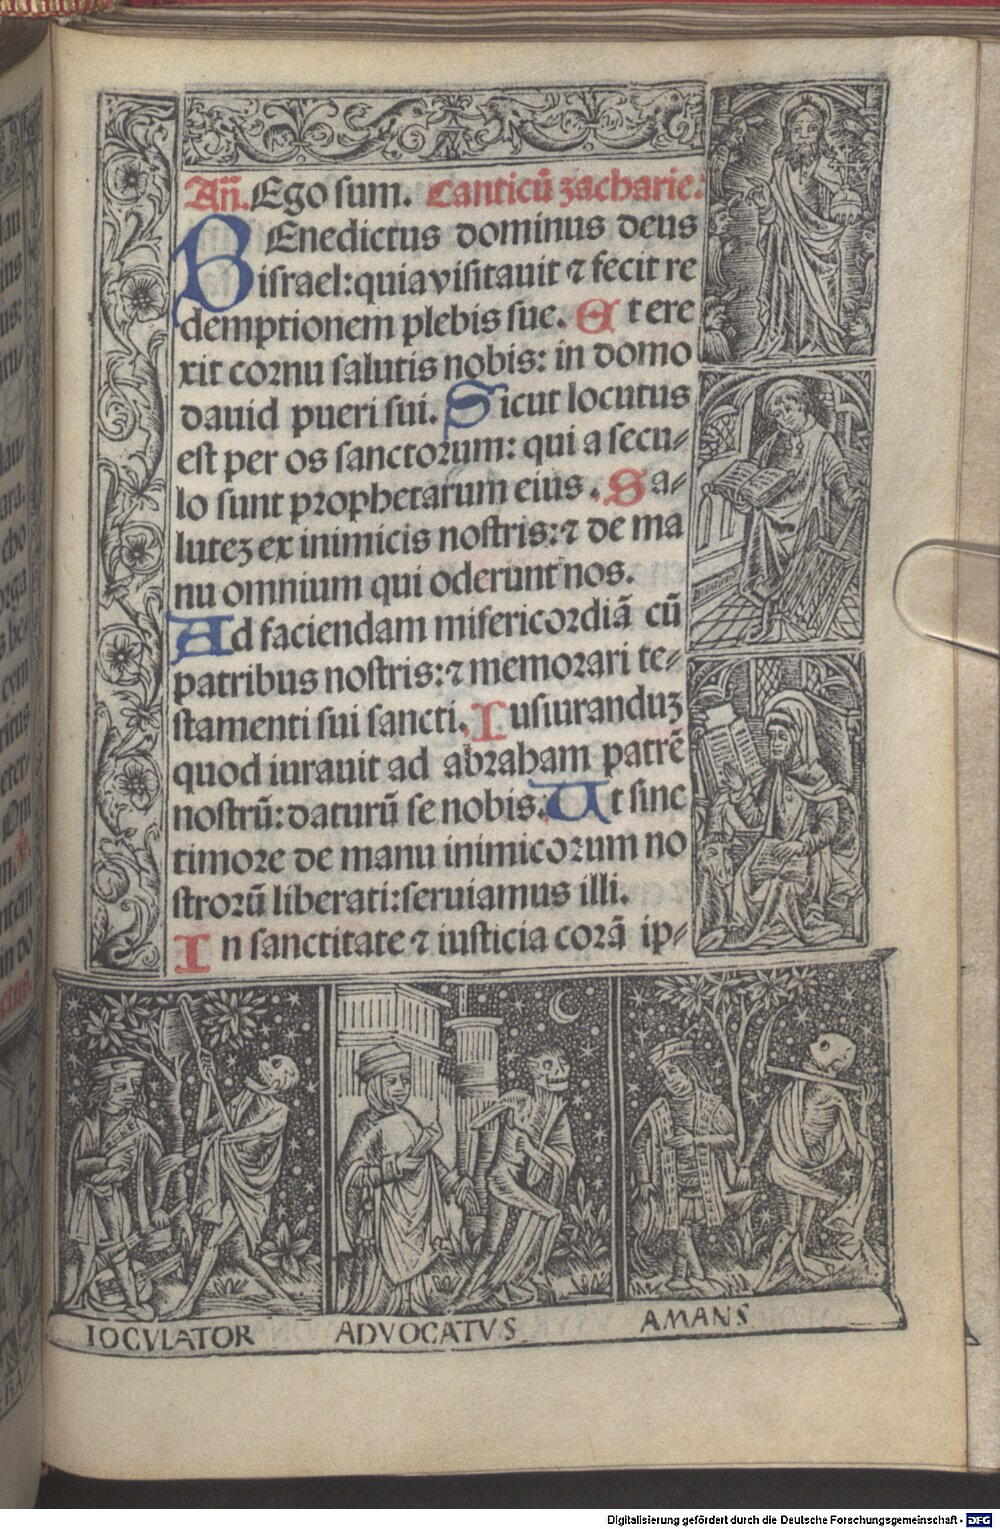 Añ. Ego sum. Canticū zacharie.
BEnedictus dominus deus
israel: quia visitauit ⁊ fecit re
demptionem plebis sue. Et ere
xit cornu salutis nobis: in domo
dauid pueri sui. Sicut locutus
est per os sanctorum: qui a secu⸗
lo sunt prophetarum eius. Sa⸗
lutez ex inimicis nostris: ⁊ de ma
nu omnium qui oderunt nos.
Ad faciendam misericordiā cū
patribus nostris: ⁊ memorari te⸗
stamenti sui sancti. Iusiuranduz
quod iurauit ad abraham patrē
nostrū: daturū se nobis. Ut sine
timore de manu inimicorum no
strorū liberati: seruiamus illi.
In sanctitate ⁊ iusticia corā ip⸗
IOCVLATOR ADVOCATVS AMANS
Digitalisierung gefördert durch die Deutsche Forschungsgemeinschaft - DFG